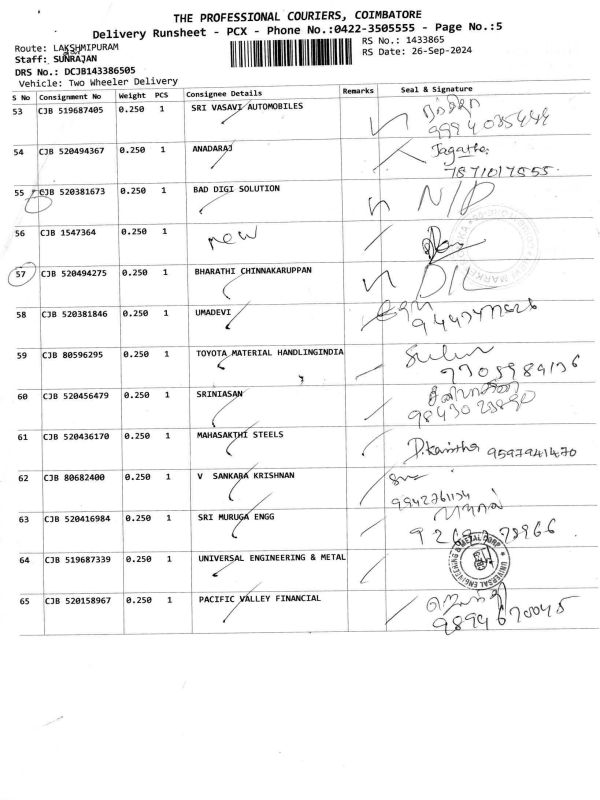 THE PROFESSIONAL COURIERS, COIMBATORE
Delivery Runsheet - PCX - Phone No.:0422-3505555 - Page No.:5
Route: LAKSHMIPURAM
RS No.: 1433865
Staff: SUNRAJAN
RS Date: 26-Sep-2024
DRS No.: DCJB143386505
Vehicle: Two Wheeler Delivery
S No Consignment No Weight PCS Consignee Details Remarks Seal & Signature
53 CJB 519687405 0.250 1 SRI VASAVI AUTOMOBILES
54 CJB 520494367 0.250 1 ANADARAJ Jagatha
7871017555
55 CJB 520381673 0.250 1 BAD DIGI SOLUTION N/D
56 CJB 1547364 0.250 1 new
57 CJB 520494275 0.250 1 BHARATHI CHINNAKARUPPAN D/L
58 CJB 520381846 0.250 1 UMADEVI
59 CJB 80596295 0.250 1 TOYOTA MATERIAL HANDLINGINDIA
60 CJB 520456479 0.250 1 SRINIASAN
61 CJB 520436170 0.250 1 MAHASAKTHI STEELS D.Kavitha 9597941470
62 CJB 80682400 0.250 1 V SANKARA KRISHNAN
63 CJB 520416984 0.250 1 SRI MURUGA ENGG
64 CJB 519687339 0.250 1 UNIVERSAL ENGINEERING & METAL
UNIVERSAL ENGINEERING & METAL CORP
65 CJB 520158967 0.250 1 PACIFIC VALLEY FINANCIAL